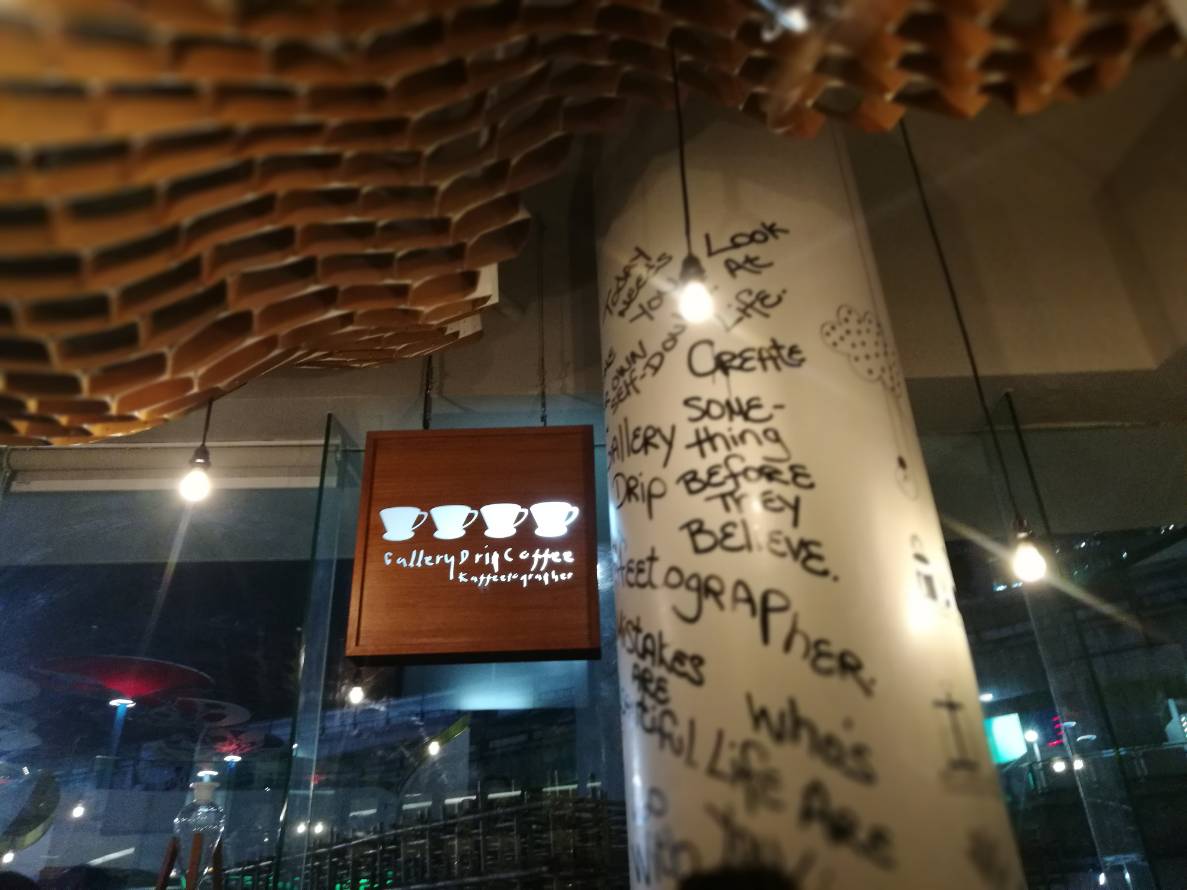 Gallery Drip Coffee
Kaffeetographer
TODAY
NEEDS
Look
At
Life.
OWN
SElf-
CREAte
SOME-
thing
BEfoRE
ThEY
BEliEVE.
GallERY
DRip
ogRAPhER.
ARE
Life
Who's
ARE
YOU